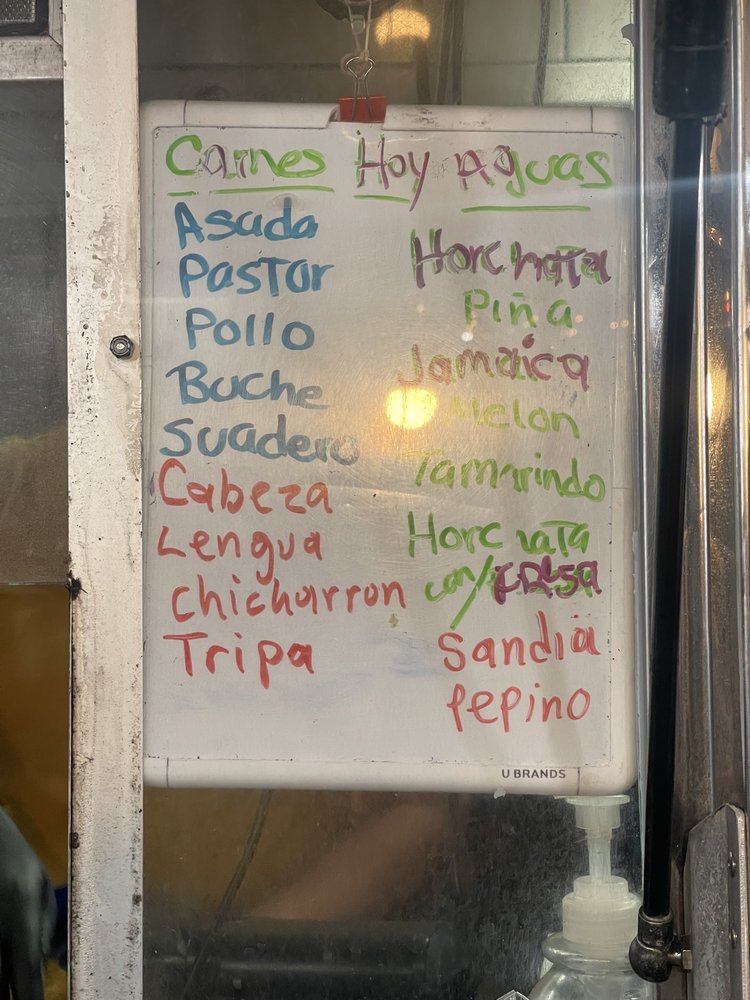 Carnes Hoy Aguas
Asada
Pastor
Pollo
Buche
Suadero
Cabeza
Lengua
Chicharron
Tripa
Horchata
Piña
Jamaica
Melon
Tamarindo
Horchata
con/fresa
Sandia
Pepino
U BRANDS